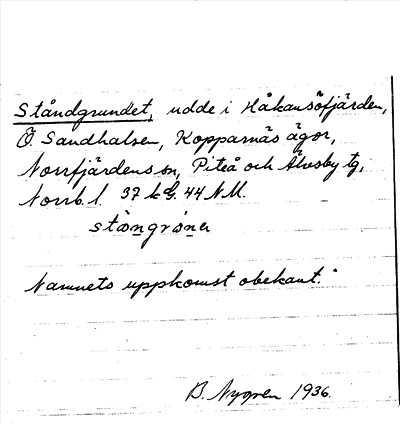 Ståndgrundet, udde i Håkansöfjärden,
Ö. Sandhalsen, Kopparnäs ägor,
Norrfjärdens sn, Piteå och Älvsby tg,
Norrb. l. 37 k G. 44 NM.
Namnets uppkomst obekant."
B. Nygren 1936.